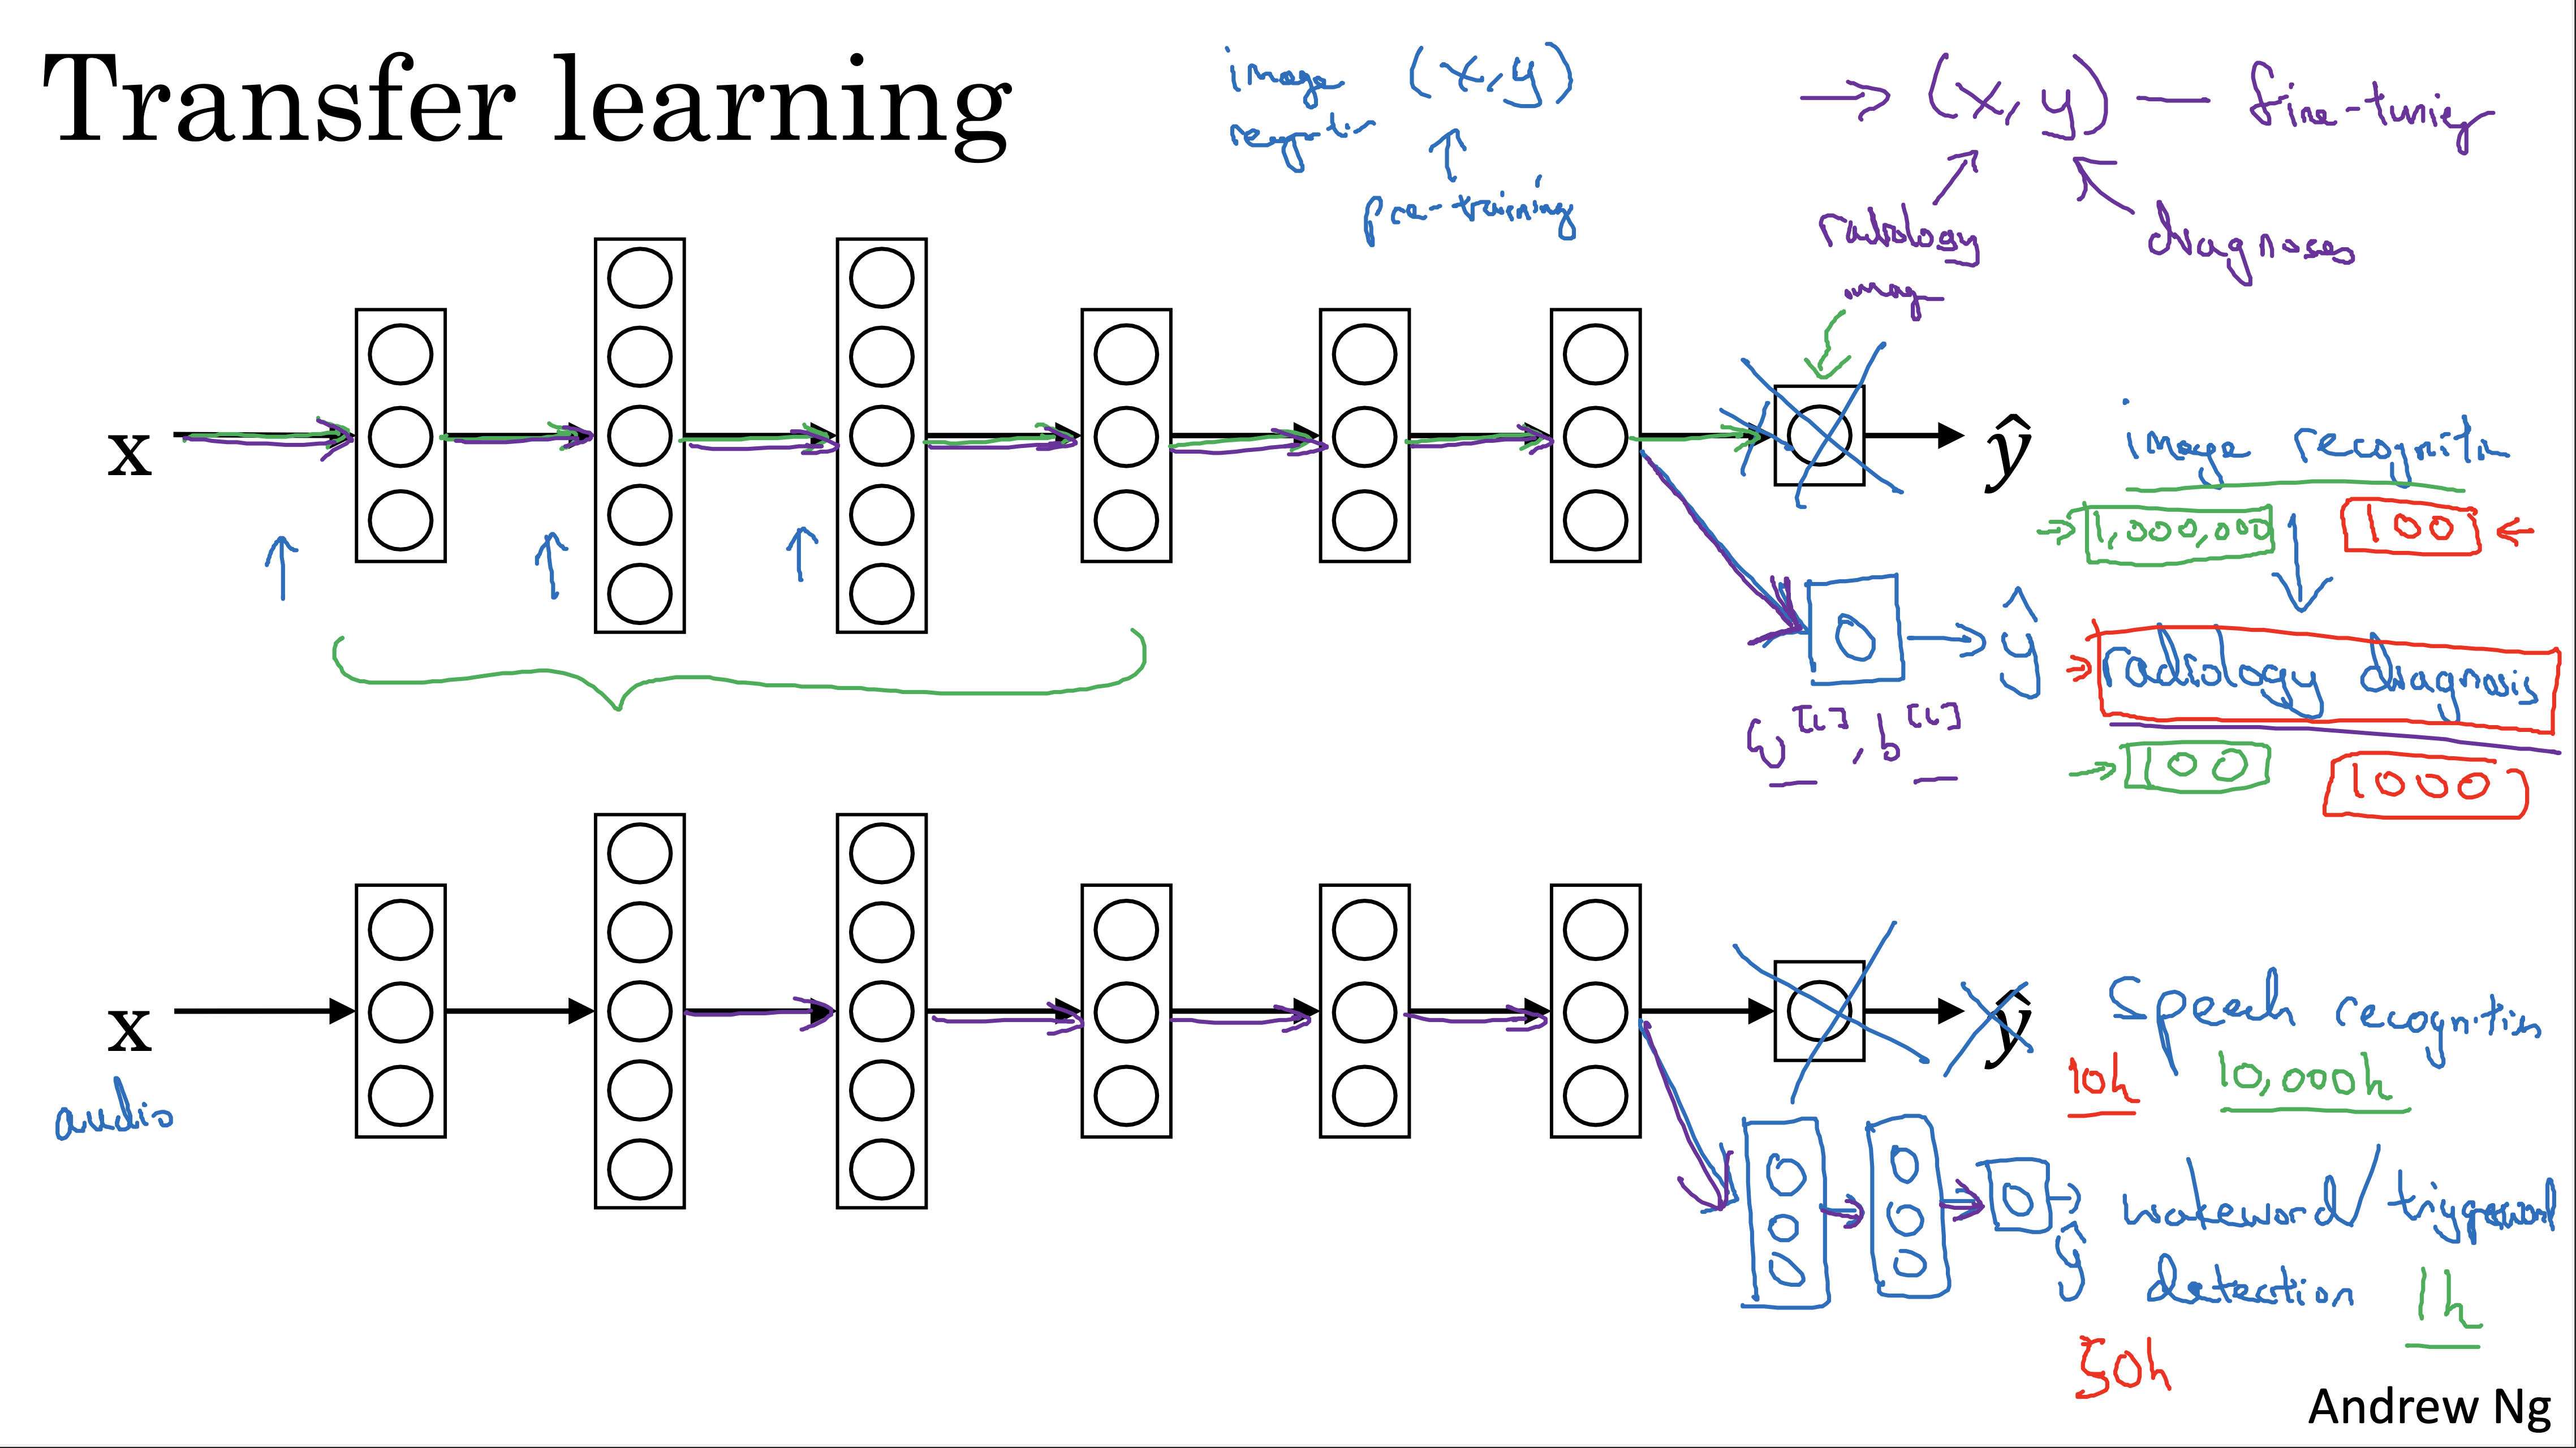 Transfer learning
image (x,y)
pre-training
→ (x,y) — fine-tuning
radiology
diagnoses
x
ŷ
image recognition
1,000,000 100
ŷ
radiology diagnosis
w[L], b[L]
100 1000
x
audio
ŷ
Speech recognition
10h 10,000h
wakeword/triggerword
ŷ
detection
1h
50h
Andrew Ng